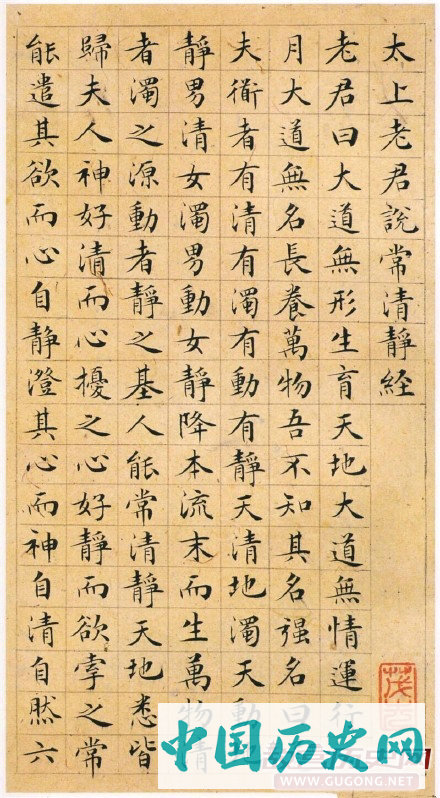 太上老君說常清靜經
老君曰大道無形生育天地大道無情運行
月大道無名長養萬物吾不知其名强名曰
夫衜者有清有濁有動有靜天清地濁天動
靜男清女濁男動女靜降本流末而生萬物清
者濁之源動者靜之基人能常清靜天地悉皆
歸夫人神好清而心擾之心好靜而欲牽之常
能遣其欲而心自靜澄其心而神自清自然六
中国历史网
WWW.GUGONG.NET